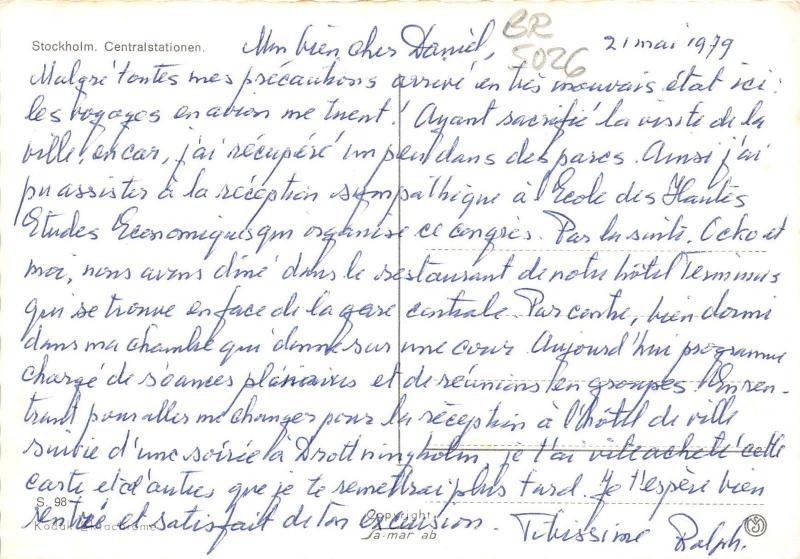 Stockholm. Centralstationen.
BR
5026
Mon bien cher Daniel,
21 mai 1979
Malgré toutes mes précautions arrivé en très mauvais état ici :
les voyages en avion me tuent ! Ayant sacrifié la visite de la
ville en car, j'ai récupéré un peu dans des parcs. Ainsi j'ai
pu assister à la réception sympathique à l'Ecole des Hautes
Etudes Economiques qui organise ce congrès. Par la suite, Ocko et
moi, nous avons dîné dans le restaurant de notre hôtel Terminus
qui se trouve en face de la gare centrale. Par contre, bien dormi
dans ma chambre qui donne sur une cour. Aujourd'hui programme
chargé de séances plénières et de réunions en groupes. En ren-
trant pour aller me changer pour la réception à l'hôtel de ville
suivie d'une soirée à Drottningholm, je t'ai vite acheté cette
carte et d'autres que je te remettrai plus tard. Je t'espère bien
rentré et satisfait de ton excursion. Ralph.
S. 98
Kodak Ektachrome
Copyright:
Sa-mar ab